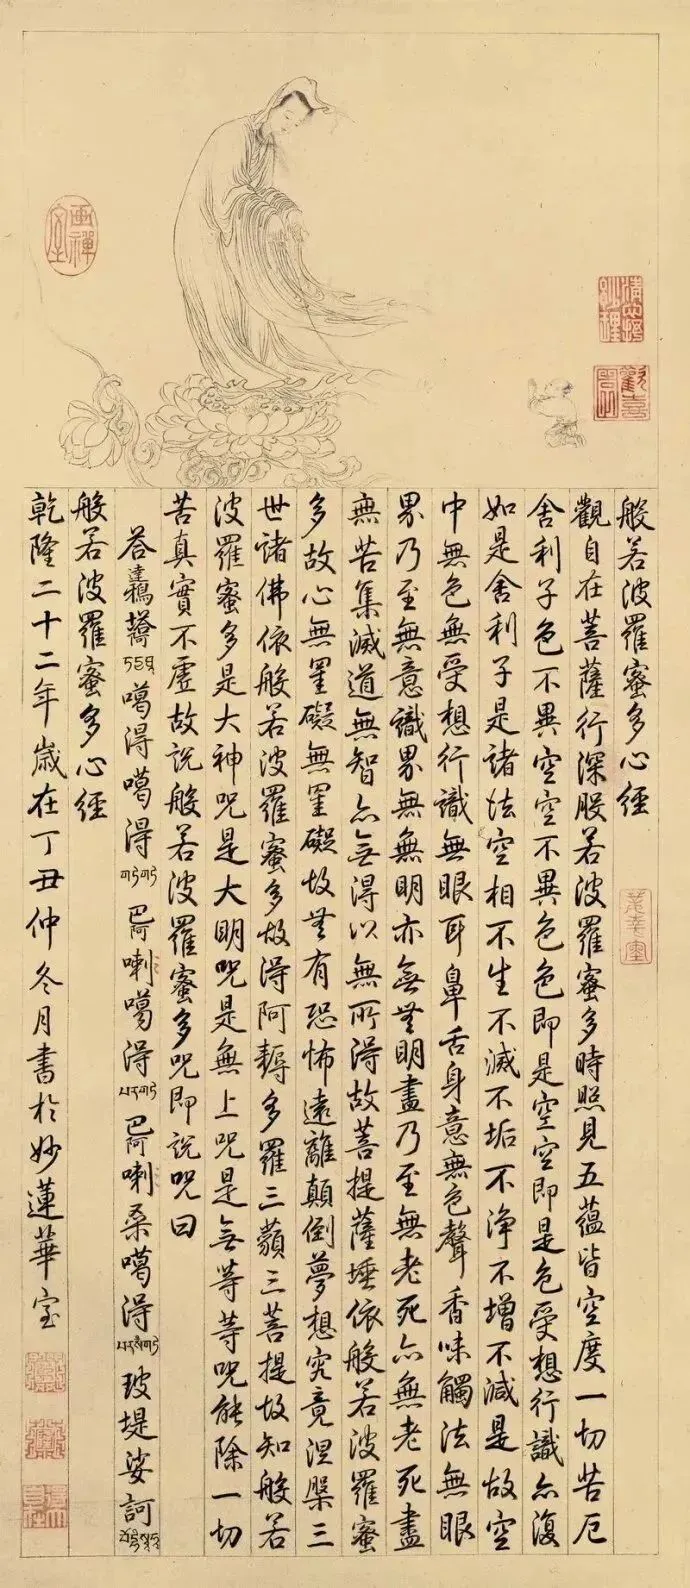 般若波羅蜜多心經
觀自在菩薩行深般若波羅蜜多時照見五蘊皆空度一切苦厄
舍利子色不異空空不異色色即是空空即是色受想行識亦復
如是舍利子是諸法空相不生不滅不垢不淨不增不減是故空
中無色無受想行識無眼耳鼻舌身意無色聲香味觸法無眼
界乃至無意識界無無明亦無無明盡乃至無老死亦無老死盡
無苦集滅道無智亦無得以無所得故菩提薩埵依般若波羅蜜
多故心無罣礙無罣礙故無有恐怖遠離顛倒夢想究竟涅槃三
世諸佛依般若波羅蜜多故得阿耨多羅三藐三菩提故知般若
波羅蜜多是大神咒是大明咒是無上咒是無等等咒能除一切
苦真實不虛故說般若波羅蜜多咒即說咒曰
答達鴉塔 噶得噶得 巴阿喇噶得 巴阿喇桑噶得 玻堤娑訶
般若波羅蜜多心經
乾隆二十二年歲在丁丑仲冬月書於妙蓮華室
画禪室